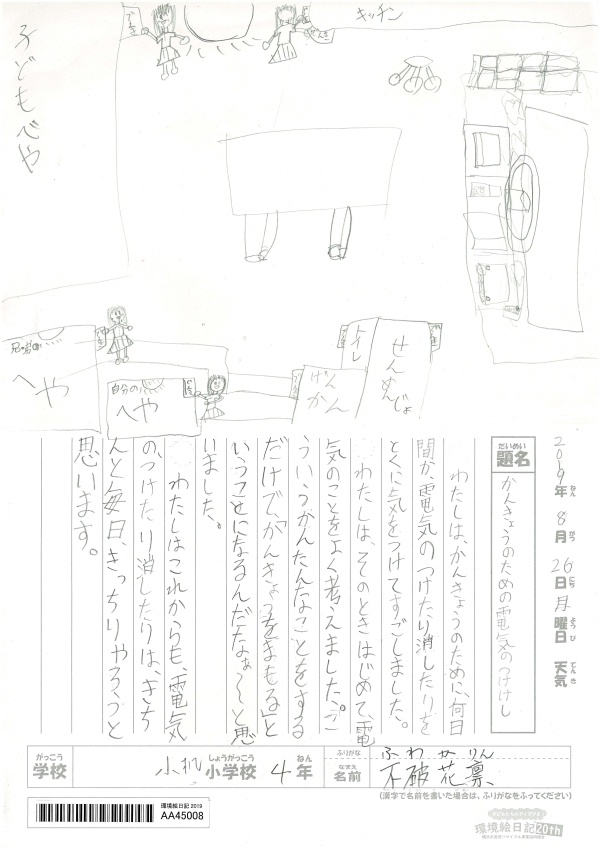 キッチン
子どもべや
でんき
でんき
トイレ
せんめんじょ
げんかん
兄の
へや
自分の
へや
2019年 8月 26日 月曜日 天気
ねん がつ にち ようび てんき
だいめい
題名
かんきょうのための電気のつけけし
わたしは、かんきょうのために、何日
間か、電気のつけたり消したりを
とくに気をつけてすごしました。
わたしは、そのときはじめて、電
気のことをよく考えました。「こ
ういうかんたんなことをする
だけで、「かんきょうをまもる」と
いうことになるんだなぁ〜と思
いました。
わたしはこれからも、電気
の、つけたり消したりは、きち
んと毎日、きっちりやろうと
思います。
がっこう
学校
小机
しょうがっこう
小学校
4
ねん
年
ふりがな
ふわ かりん
なまえ
名前
不破 花凛
(漢字で名前を書いた場合は、ふりがなをふってください)
環境絵日記 2019
AA45008
環境絵日記20th